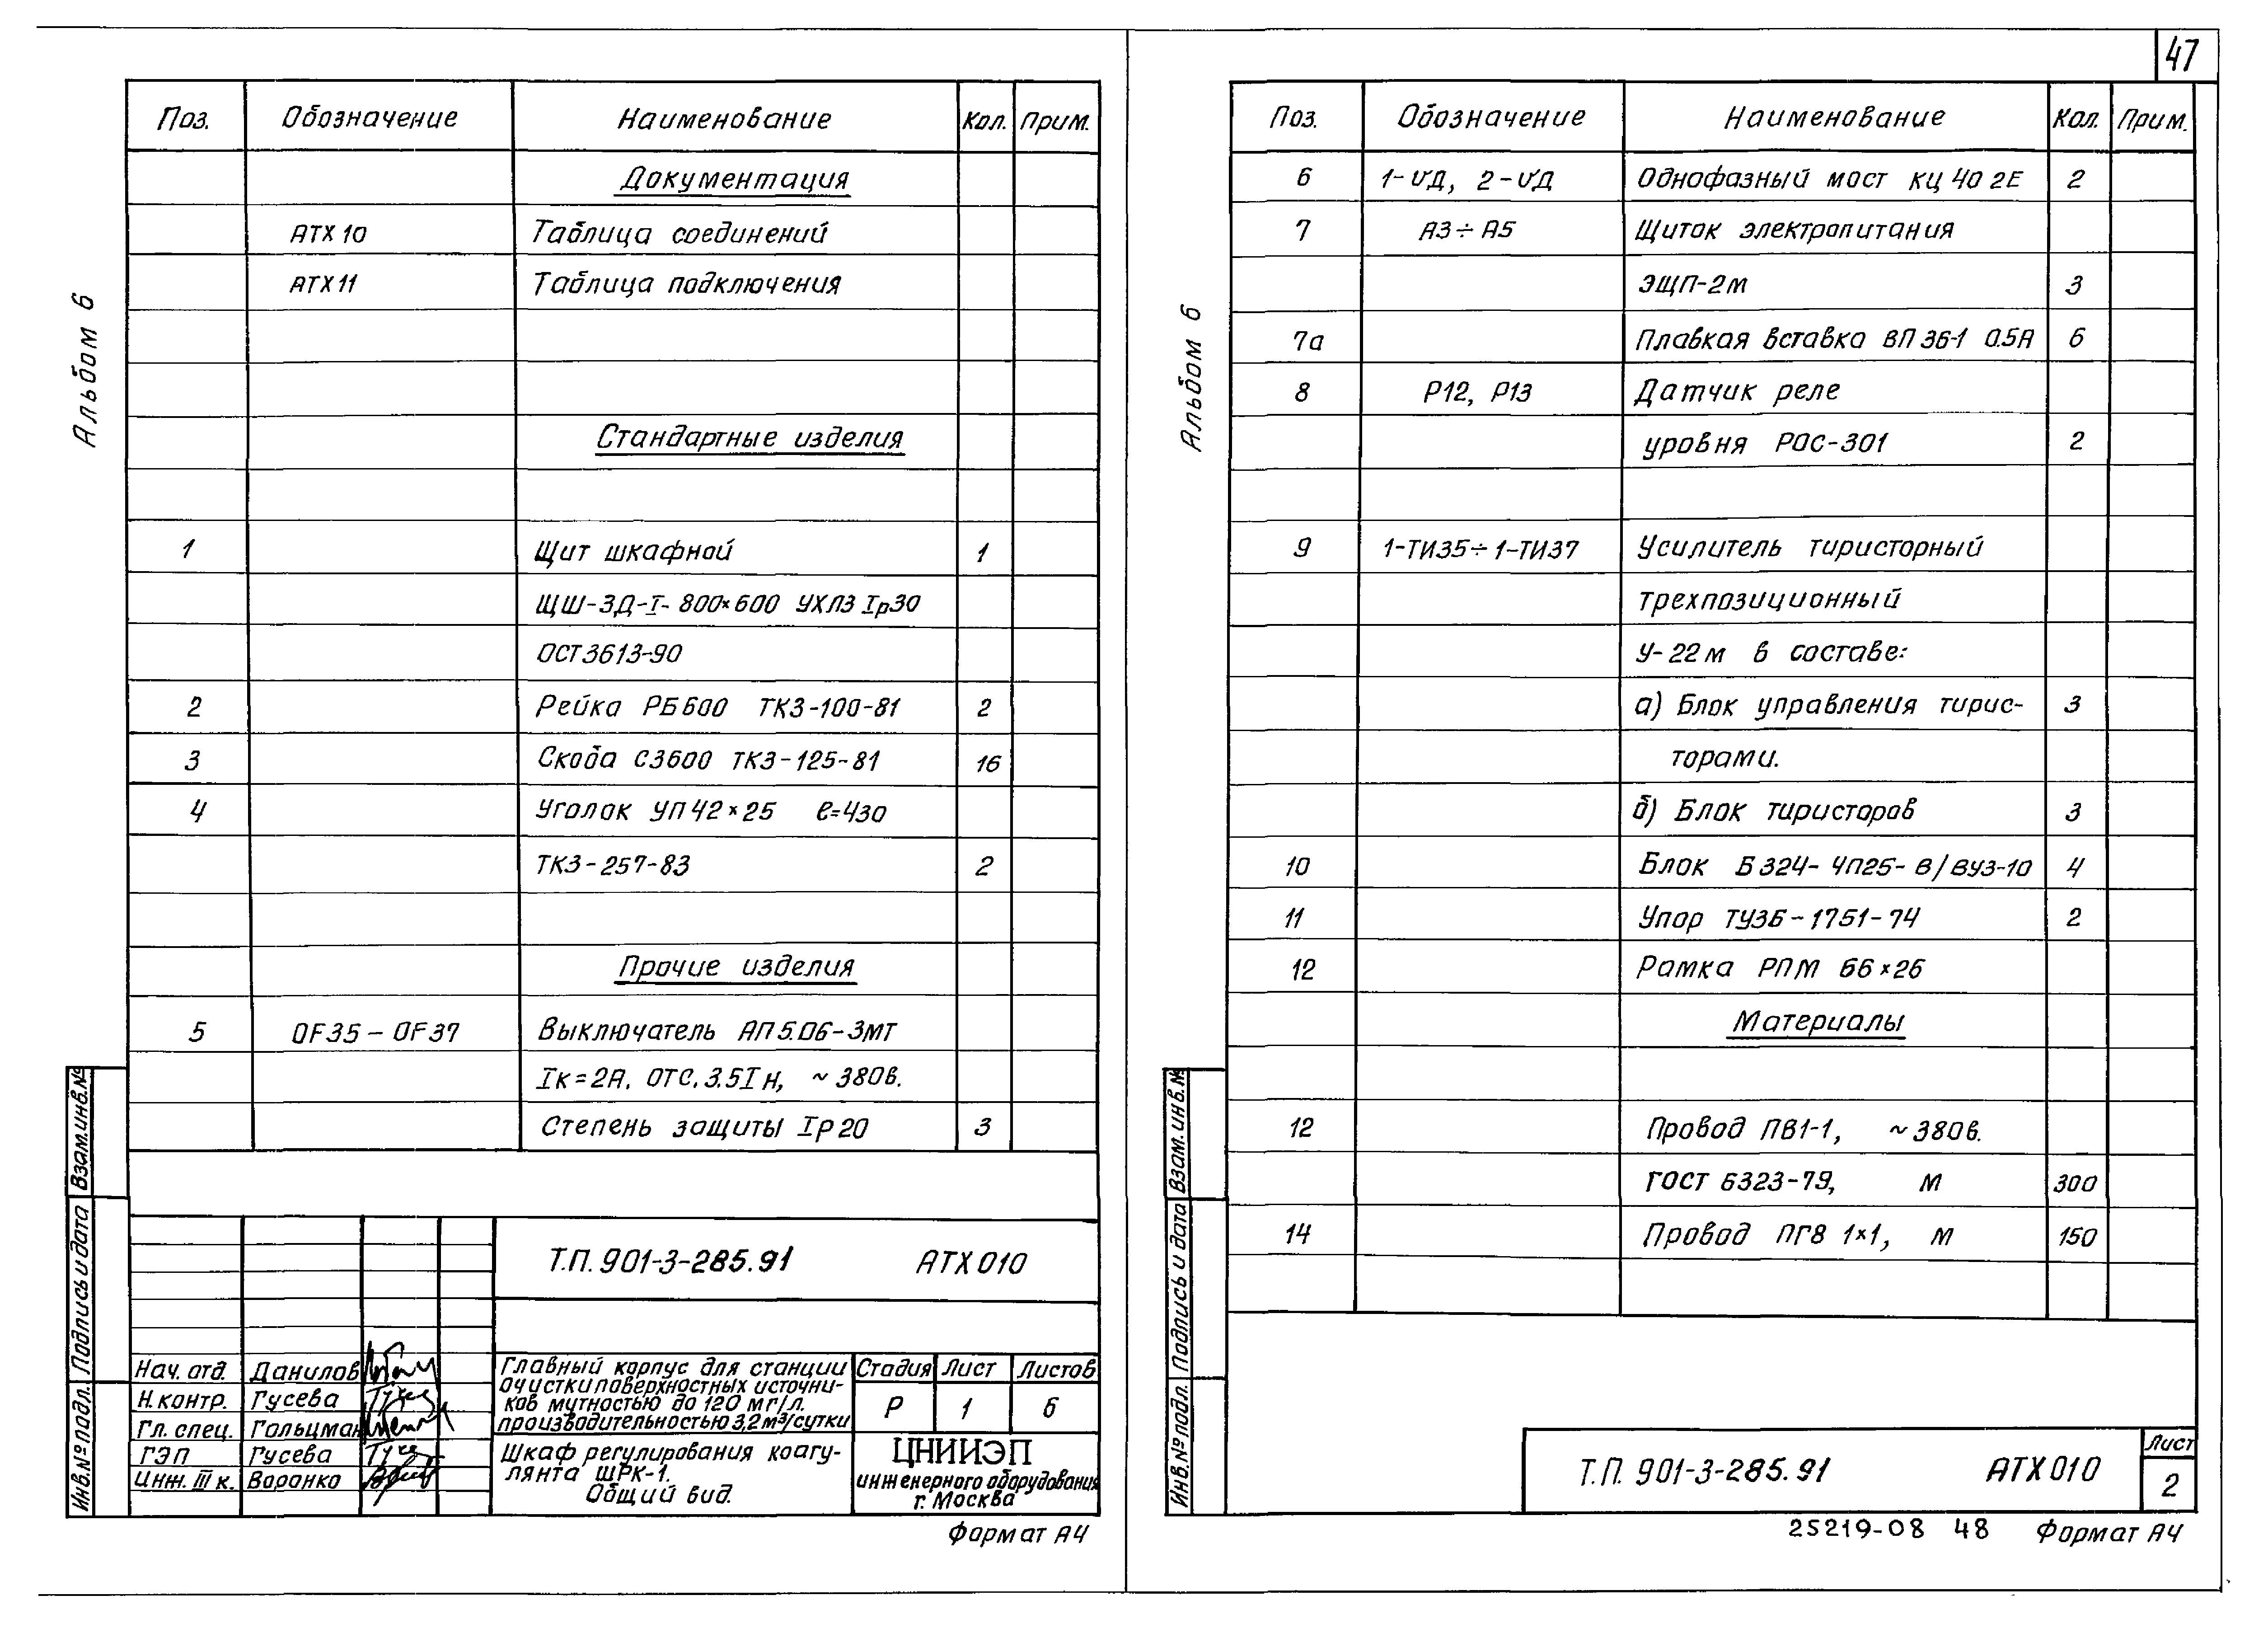 47
Альбом 6
Поз. Обозначение Наименование Кол. Прим.
Документация
АТХ10 Таблица соединений
АТХ11 Таблица подключения
Стандартные изделия
1 Щит шкафной 1
ЩШ-ЗД-I-800×600 УХЛ3 Iр30
ОСТ3613-90
2 Рейка РБ600 ТК3-100-81 2
3 Скоба С3600 ТК3-125-81 16
4 Уголок УП42×25 ℓ=430
ТК3-257-83 2
Прочие изделия
5 QF35 – QF37 Выключатель АП5.06-3МТ
Iк=2А, ОТС.3.5Iн, ~380в.
Степень защиты Iр20 3
Взам.инв.№
Подпись и дата
Инв.№подл.
Т.П. 901-3-285.91 АТХ010
Нач. отд. Данилов
Н.контр. Гусева
Гл. спец. Гольцман
ГЭП Гусева
Инж. III к. Воронко
Главный корпус для станции
очистки поверхностных источни-
ков мутностью до 120 мг/л.
производительностью 3,2м³/сутки
Стадия Лист Листов
Р 1 6
Шкаф регулирования коагу-
лянта ШРК-1.
Общий вид.
ЦНИИЭП
инженерного оборудования
г. Москва
Формат А4
Альбом 6
Поз. Обозначение Наименование Кол. Прим.
6 1-VД, 2-VД Однофазный мост КЦ402Е 2
7 А3÷А5 Щиток электропитания
ЭЩП-2м 3
7а Плавкая вставка ВП3б-1 0.5А 6
8 Р12, Р13 Датчик реле
уровня РОС-301 2
9 1-ТИ35÷1-ТИ37 Усилитель тиристорный
трехпозиционный
У-22м в составе:
а) Блок управления тирис- 3
торами.
б) Блок тиристоров 3
10 Блок Б324-4П25-В/ВУ3-10 4
11 Упор ТУ36-1751-74 2
12 Рамка РПМ 66×26
Материалы
12 Провод ПВ1-1, ~380в.
ГОСТ 6323-79, м 300
14 Провод ПГВ 1×1, м 150
Взам.инв.№
Подпись и дата
Инв.№подл.
Т.П. 901-3-285.91 АТХ010
Лист
2
25219-08 48 Формат А4